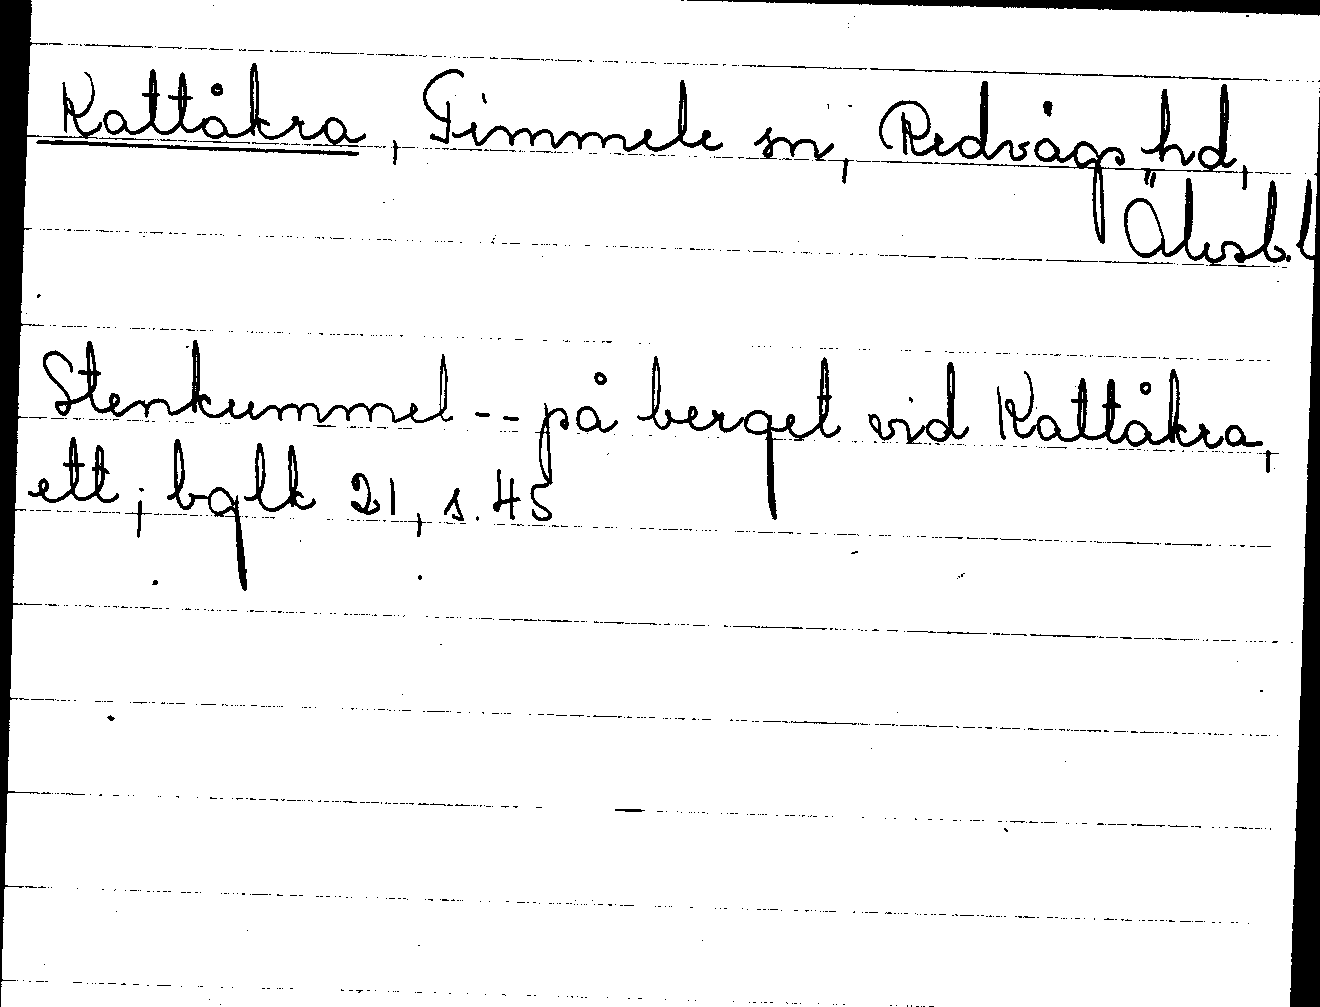 Kattåkra, Timmele sn, Redvägs hd,
Älvsb.l
Stenkummel -- på berget vid Kattåkra,
ett; bglk 21, s. 45